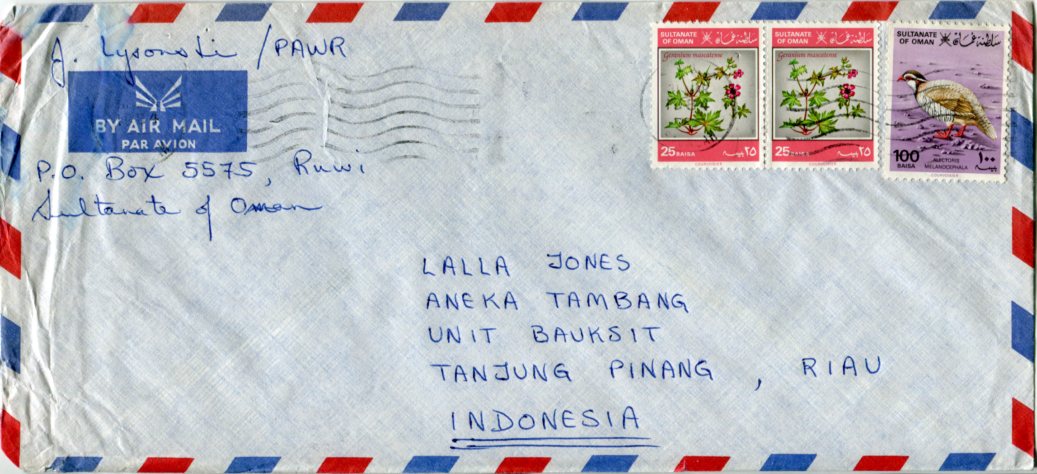 J. Lysons Li / PAWR
BY AIR MAIL
PAR AVION
P.O. Box 5575, Ruwi
Sultanate of Oman
SULTANATE OF OMAN سلطنة عمان
Geranium mascatense
25 BAISA ٢٥ بيسة
COURVOISIER
SULTANATE OF OMAN سلطنة عمان
Geranium mascatense
25 BAISA ٢٥ بيسة
COURVOISIER
SULTANATE OF OMAN سلطنة عمان
100 BAISA ALECTORIS MELANOCEPHALA ١٠٠ بيسة
COURVOISIER
LALLA JONES
ANEKA TAMBANG
UNIT BAUKSIT
TANJUNG PINANG, RIAU
INDONESIA